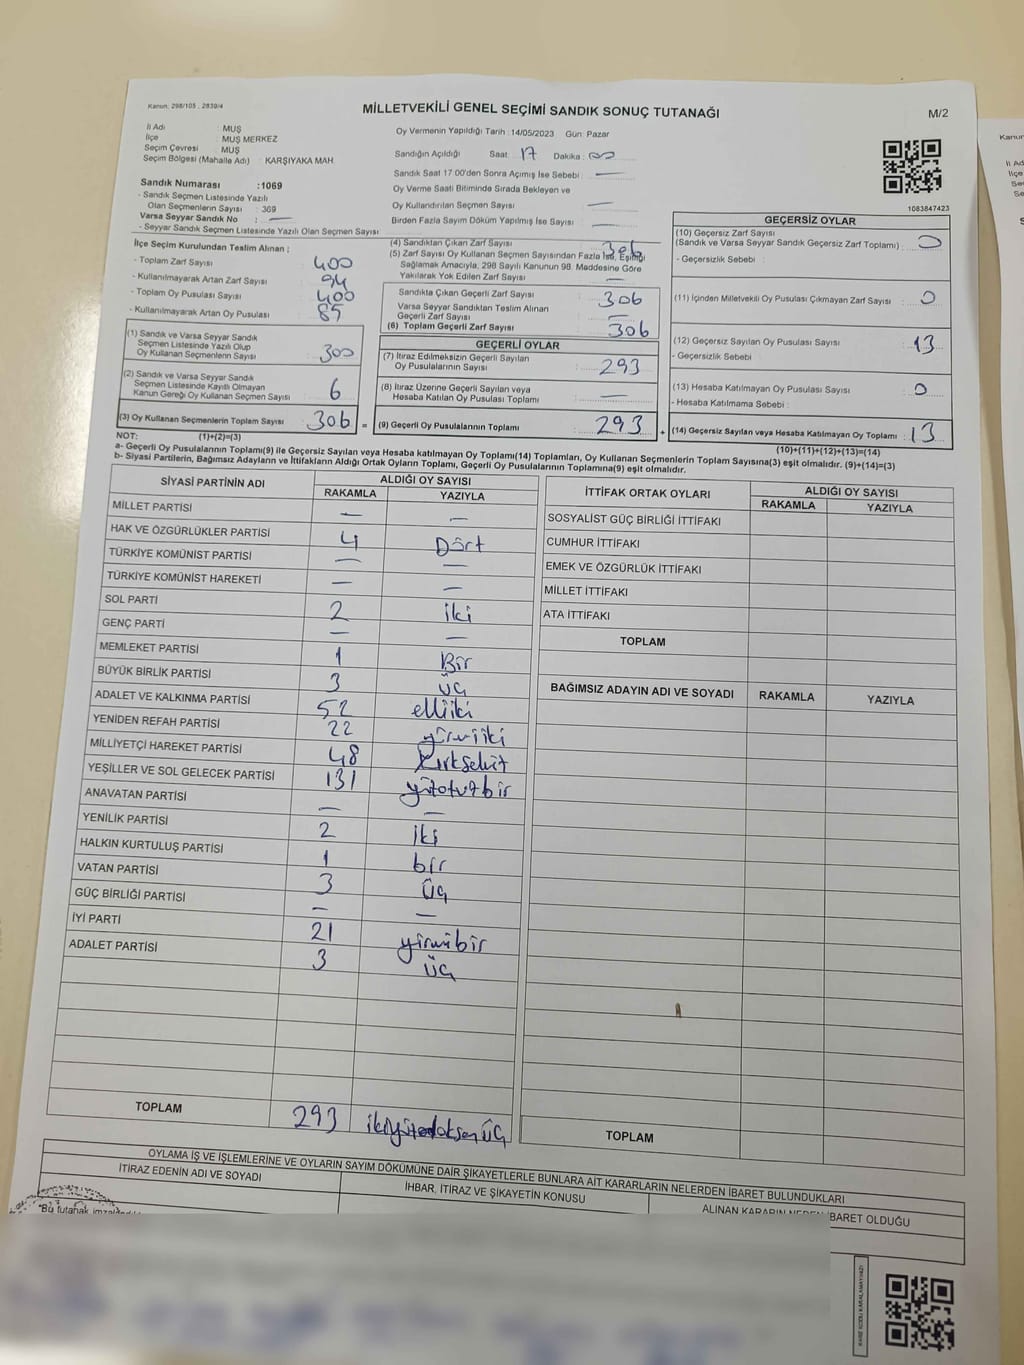 Kanun: 298/105 , 2839/4
MİLLETVEKİLİ GENEL SEÇİMİ SANDIK SONUÇ TUTANAĞI
M/2
İl Adı : MUŞ
İlçe : MUŞ MERKEZ
Seçim Çevresi : MUŞ
Seçim Bölgesi (Mahalle Adı) : KARŞIYAKA MAH
Sandık Numarası :1069
- Sandık Seçmen Listesinde Yazılı
Olan Seçmenlerin Sayısı : 369
Varsa Seyyar Sandık No : —
- Seyyar Sandık Seçmen Listesinde Yazılı Olan Seçmen Sayısı
Oy Vermenin Yapıldığı Tarih :14/05/2023 Gün: Pazar
Sandığın Açıldığı Saat: 17 Dakika: 00
Sandık Saat 17:00'den Sonra Açılmış İse Sebebi : —
Oy Verme Saati Bitiminde Sırada Bekleyen ve
Oy Kullandırılan Seçmen Sayısı : —
Birden Fazla Sayım Döküm Yapılmış İse Sayısı : —
1083847423
İlçe Seçim Kurulundan Teslim Alınan ;
- Toplam Zarf Sayısı : 400
- Kullanılmayarak Artan Zarf Sayısı : 94
- Toplam Oy Pusulası Sayısı : 400
- Kullanılmayarak Artan Oy Pusulası : 85
(1) Sandık ve Varsa Seyyar Sandık
Seçmen Listesinde Yazılı Olup
Oy Kullanan Seçmenlerin Sayısı : 300
(2) Sandık ve Varsa Seyyar Sandık
Seçmen Listesinde Kayıtlı Olmayan
Kanun Gereği Oy Kullanan Seçmen Sayısı : 6
(3) Oy Kullanan Seçmenlerin Toplam Sayısı : 306
(4) Sandıktan Çıkan Zarf Sayısı : 306
(5) Zarf Sayısı Oy Kullanan Seçmen Sayısından Fazla İse, Eşitliği
Sağlamak Amacıyla, 298 Sayılı Kanunun 98. Maddesine Göre
Yakılarak Yok Edilen Zarf Sayısı : —
Sandıkta Çıkan Geçerli Zarf Sayısı : 306
Varsa Seyyar Sandıktan Teslim Alınan
Geçerli Zarf Sayısı : —
(6) Toplam Geçerli Zarf Sayısı : 306
GEÇERLİ OYLAR
(7) İtiraz Edilmeksizin Geçerli Sayılan
Oy Pusulalarının Sayısı : 293
(8) İtiraz Üzerine Geçerli Sayılan veya
Hesaba Katılan Oy Pusulası Toplamı : —
= (9) Geçerli Oy Pusulalarının Toplamı : 293
GEÇERSİZ OYLAR
(10) Geçersiz Zarf Sayısı
(Sandık ve Varsa Seyyar Sandık Geçersiz Zarf Toplamı) : 0
- Geçersizlik Sebebi :
(11) İçinden Milletvekili Oy Pusulası Çıkmayan Zarf Sayısı : 0
(12) Geçersiz Sayılan Oy Pusulası Sayısı : 13
- Geçersizlik Sebebi :
(13) Hesaba Katılmayan Oy Pusulası Sayısı : 0
- Hesaba Katılmama Sebebi :
+ (14) Geçersiz Sayılan veya Hesaba Katılmayan Oy Toplamı : 13
NOT: (1)+(2)=(3)
(10)+(11)+(12)+(13)=(14)
a- Geçerli Oy Pusulalarının Toplamı(9) ile Geçersiz Sayılan veya Hesaba katılmayan Oy Toplamı(14) Toplamları, Oy Kullanan Seçmenlerin Toplam Sayısına(3) eşit olmalıdır. (9)+(14)=(3)
b- Siyasi Partilerin, Bağımsız Adayların ve İttifakların Aldığı Ortak Oyların Toplamı, Geçerli Oy Pusulalarının Toplamına(9) eşit olmalıdır.
SİYASİ PARTİNİN ADI ALDIĞI OY SAYISI
RAKAMLA YAZIYLA
MİLLET PARTİSİ — —
HAK VE ÖZGÜRLÜKLER PARTİSİ 4 Dört
TÜRKİYE KOMÜNİST PARTİSİ — —
TÜRKİYE KOMÜNİST HAREKETİ — —
SOL PARTİ 2 iki
GENÇ PARTİ — —
MEMLEKET PARTİSİ 1 Bir
BÜYÜK BİRLİK PARTİSİ 3 üç
ADALET VE KALKINMA PARTİSİ 52 elliiki
YENİDEN REFAH PARTİSİ 22 yirmiiki
MİLLİYETÇİ HAREKET PARTİSİ 48 kırksekiz
YEŞİLLER VE SOL GELECEK PARTİSİ 131 yüzotuzbir
ANAVATAN PARTİSİ — —
YENİLİK PARTİSİ 2 iki
HALKIN KURTULUŞ PARTİSİ 1 bir
VATAN PARTİSİ 3 üç
GÜÇ BİRLİĞİ PARTİSİ — —
İYİ PARTİ 21 yirmibir
ADALET PARTİSİ 3 üç
TOPLAM 293 ikiyüzdoksanüç
İTTİFAK ORTAK OYLARI ALDIĞI OY SAYISI
RAKAMLA YAZIYLA
SOSYALİST GÜÇ BİRLİĞİ İTTİFAKI
CUMHUR İTTİFAKI
EMEK VE ÖZGÜRLÜK İTTİFAKI
MİLLET İTTİFAKI
ATA İTTİFAKI
TOPLAM
BAĞIMSIZ ADAYIN ADI VE SOYADI RAKAMLA YAZIYLA
TOPLAM
OYLAMA İŞ VE İŞLEMLERİNE VE OYLARIN SAYIM DÖKÜMÜNE DAİR ŞİKAYETLERLE BUNLARA AİT KARARLARIN NELERDEN İBARET BULUNDUKLARI
İTİRAZ EDENİN ADI VE SOYADI
İHBAR, İTİRAZ VE ŞİKAYETİN KONUSU
ALINAN KARARIN NEDEN İBARET OLDUĞU
"Bu tutanak
KARE KODU KARALAMAYINIZ!
Kanun
İl Ad
İlçe